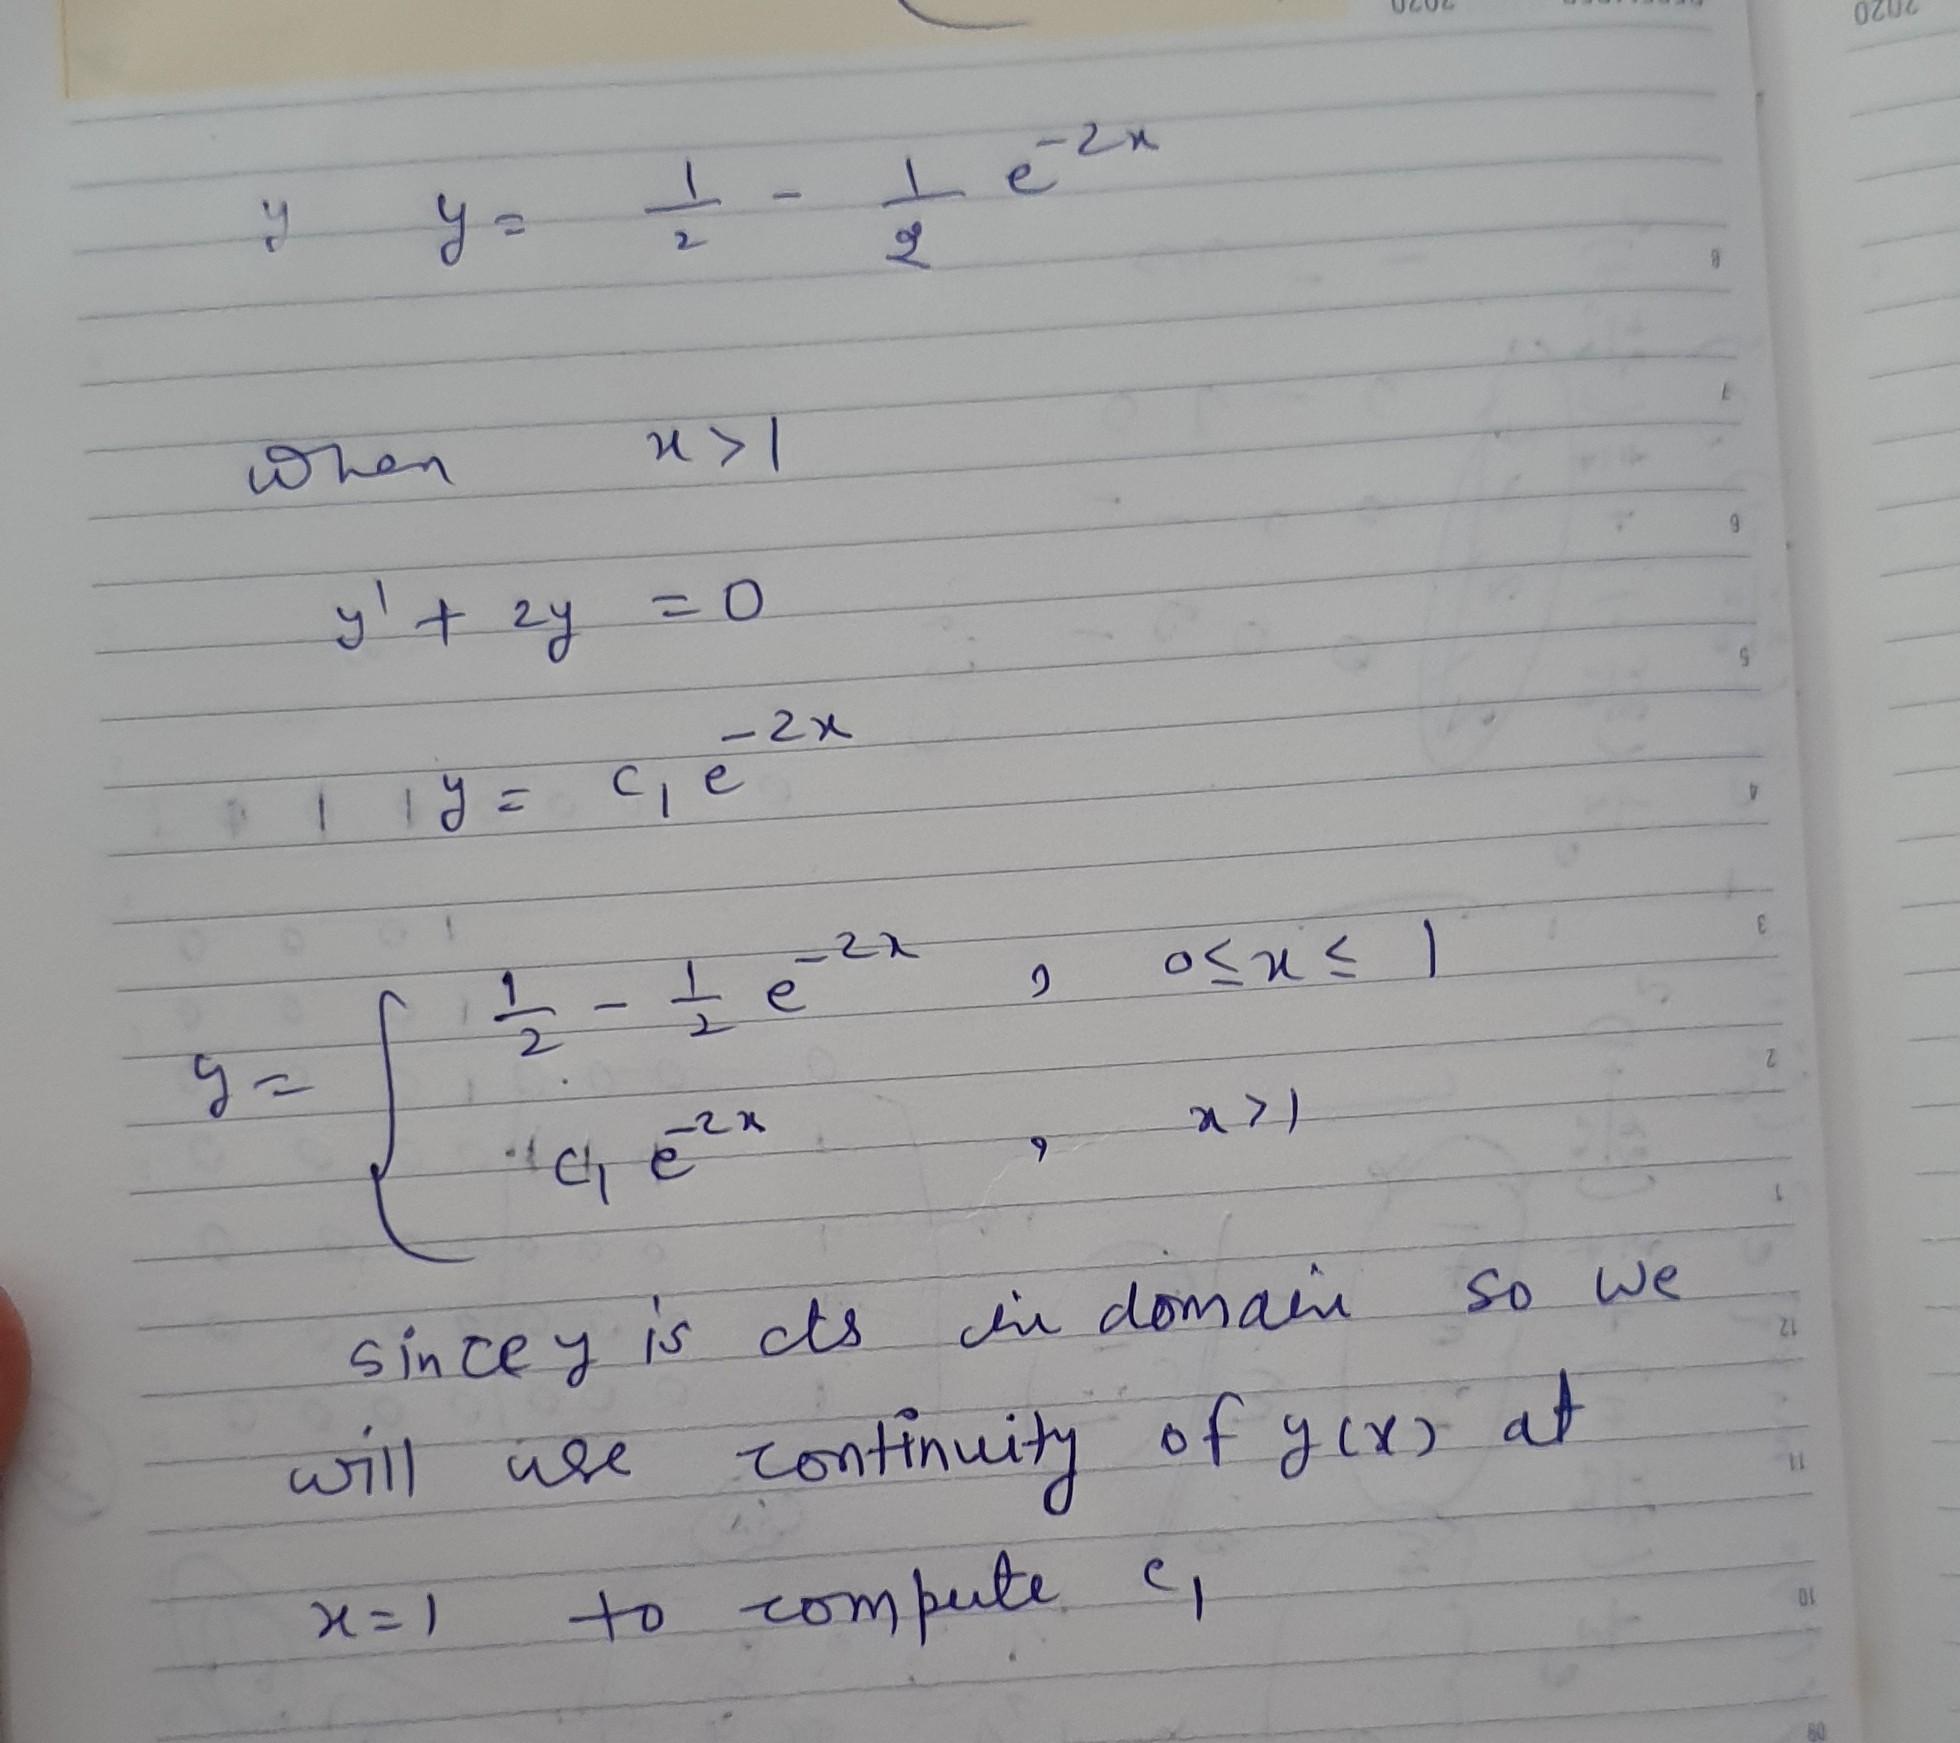 y y = 1/2 - 1/2 e^-2x
when x > 1
y' + 2y = 0
y = c₁ e^-2x
y = { 1/2 - 1/2 e^-2x , 0 ≤ x ≤ 1
c₁ e^-2x , x > 1
since y is cts in domain so we
will use continuity of y(x) at
x = 1 to compute c₁
2020
2020
8
7
6
5
4
3
2
1
12
11
10
09